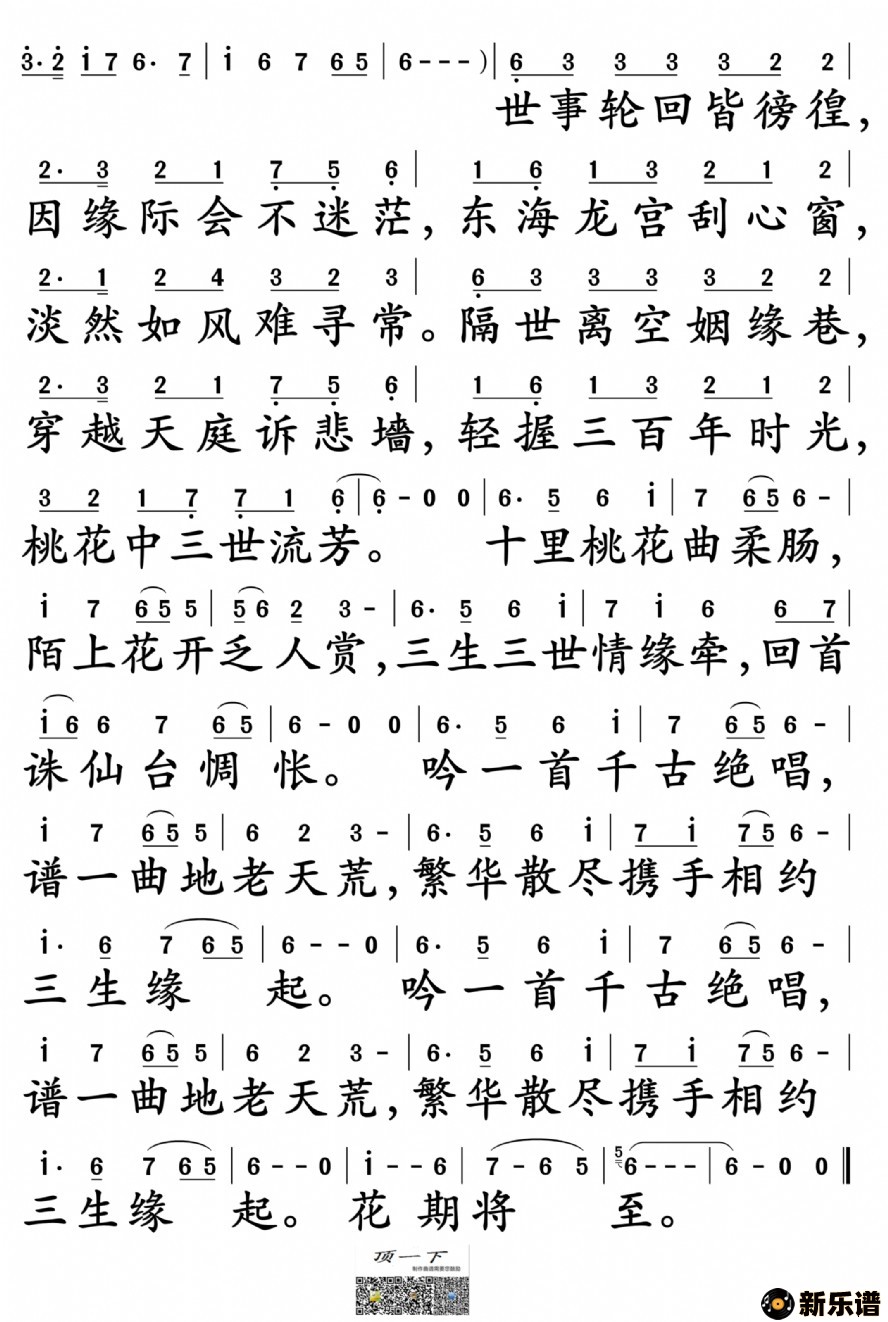 3·2 1 7 6· 7 | 1 6 7 6 5 | 6 - - - ) | 6 3 3 3 3 2 2 |
世事轮回皆徬徨，
2· 3 2 1 7 5 6 | 1 6 1 3 2 1 2 |
因缘际会不迷茫，东海龙宫刮心窗，
2· 1 2 4 3 2 3 | 6 3 3 3 3 2 2 |
淡然如风难寻常。隔世离空姻缘巷，
2· 3 2 1 7 5 6 | 1 6 1 3 2 1 2 |
穿越天庭诉悲墙，轻握三百年时光，
3 2 1 7 7 1 6 | 6 - 0 0 | 6· 5 6 1 | 7 6 5 6 - |
桃花中三世流芳。 十里桃花曲柔肠，
1 7 6 5 5 | 5 6 2 3 - | 6· 5 6 1 | 7 1 6 6 7 |
陌上花开乏人赏，三生三世情缘牵，回首
1 6 6 7 6 5 | 6 - 0 0 | 6· 5 6 1 | 7 6 5 6 - |
诛仙台惆怅。 吟一首千古绝唱，
1 7 6 5 5 | 6 2 3 - | 6· 5 6 1 | 7 1 7 5 6 - |
谱一曲地老天荒，繁华散尽携手相约
1· 6 7 6 5 | 6 - - 0 | 6· 5 6 1 | 7 6 5 6 - |
三生缘 起。 吟一首千古绝唱，
1 7 6 5 5 | 6 2 3 - | 6· 5 6 1 | 7 1 7 5 6 - |
谱一曲地老天荒，繁华散尽携手相约
1· 6 7 6 5 | 6 - - 0 | 1 - - 6 | 7 - 6 5 | 5 6 - - - | 6 - 0 0 ‖
三生缘 起。 花期将 至。
顶一下
制作曲谱需要您鼓励
新乐谱